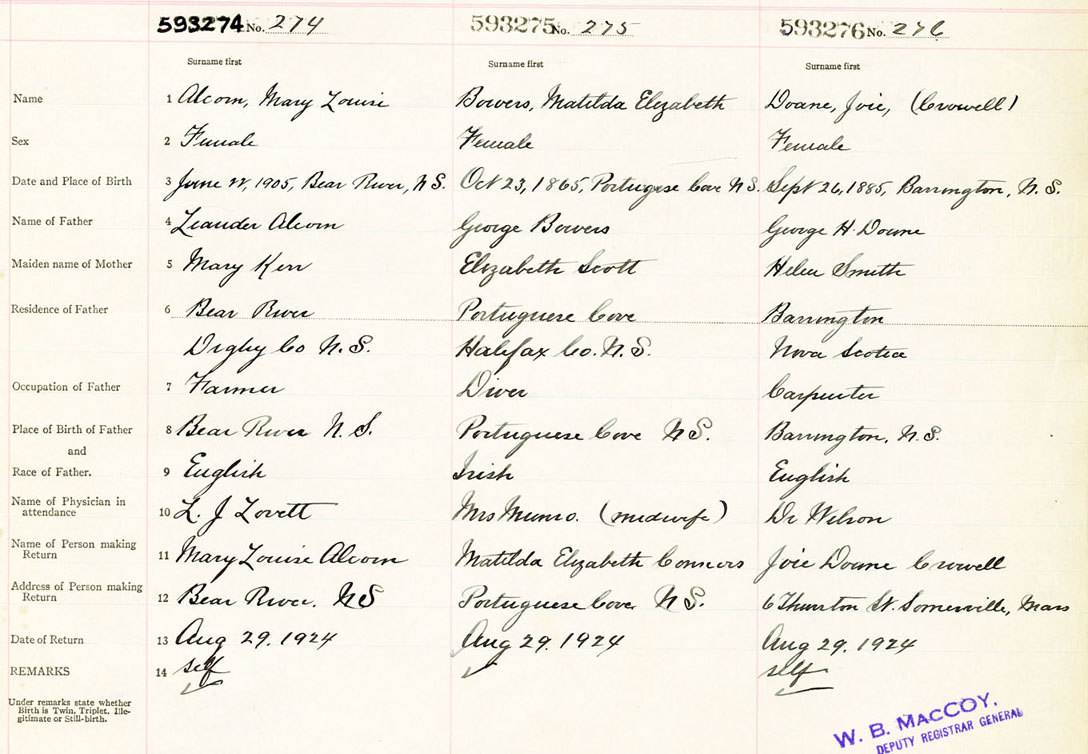 593274 No. 274 593275 No. 275 593276 No. 276
Surname first Surname first Surname first
Name 1 Alcorn, Mary Louise Bowers, Matilda Elizabeth Doane, Joie, (Crowell)
Sex 2 Female Female Female
Date and Place of Birth 3 June 22, 1905, Bear River, N.S. Oct 23, 1865, Portugese Cove N.S. Sept 26, 1885, Barrington, N.S.
Name of Father 4 Leander Alcorn George Bowers George H Doane
Maiden name of Mother 5 Mary Kerr Elizabeth Scott Helen Smith
Residence of Father 6 Bear River Portuguese Cove Barrington
Digby Co N.S. Halifax Co. N.S. Nova Scotia
Occupation of Father 7 Farmer Diver Carpenter
Place of Birth of Father 8 Bear River N.S. Portuguese Cove N.S. Barrington, N.S.
and
Race of Father. 9 English Irish English
Name of Physician in
attendance 10 L. J Lovett Mrs Munro. (midwife) Dr Wilson
Name of Person making
Return 11 Mary Louise Alcorn Matilda Elizabeth Connors Joie Doane Crowell
Address of Person making
Return 12 Bear River. N.S Portuguese Cove N.S. 6 Thurston St. Somerville, Mass
Date of Return 13 Aug 29. 1924 Aug 29. 1924 Aug 29. 1924
REMARKS 14 self self
Under remarks state whether
Birth is Twin, Triplet, Ille-
gitimate or Still-birth.
W. B. MACCOY.
DEPUTY REGISTRAR GENERAL